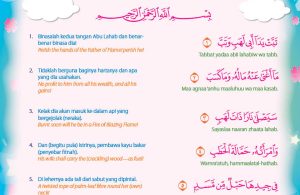 بِسْمِ اللّٰهِ الرَّحْمٰنِ الرَّحِيْمِ
1. Binasalah kedua tangan Abu Lahab dan benar-
benar binasa dia!
Perish the hands of the Father of Flame! perish he!
تَبَّتْ يَدَآ اَبِيْ لَهَبٍ وَّتَبَّ
Tabbat yadaa abii lahabiw wa tabb.
2. Tidaklah berguna baginya hartanya dan apa
yang dia usahakan.
No profit to him from all his wealth, and all his
gains!
مَآ اَغْنٰى عَنْهُ مَالُهٗ وَمَا كَسَبَ
Maa agnaa 'anhu maaluhuu wa maa kasab.
3. Kelak dia akan masuk ke dalam api yang
bergejolak (neraka).
Burnt soon will he be in a Fire of Blazing Flame!
سَيَصْلٰى نَارًا ذَاتَ لَهَبٍ
Sayaslaa naaran zhaata lahab.
4. Dan (begitu pula) istrinya, pembawa kayu bakar
(penyebar fitnah).
His wife shall carry the (crackling) wood — as fuel!
وَّامْرَاَتُهٗ حَمَّالَةَ الْحَطَبِ
Wamra'atuh, hammaalatal-hathab.
5. Di lehernya ada tali dari sabut yang dipintal.
A twisted rope of palm-leaf fibre round her (own)
neck!
فِيْ جِيْدِهَا حَبْلٌ مِّنْ مَّسَدٍ